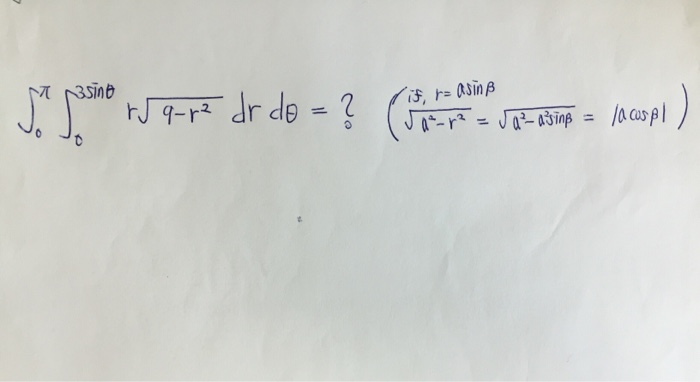 ∫₀^π ∫₀^(3sinθ) r√(9-r²) dr dθ = ? (if, r= asinβ
√(a²-r²) = √(a²-a²sinβ) = |a cosβ|)